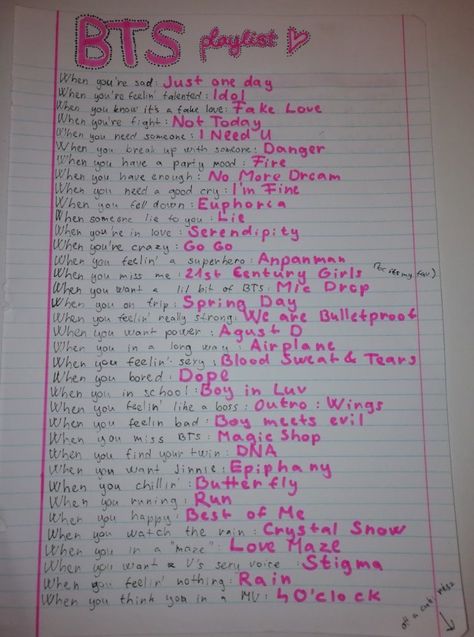 BTS playlist
When you're sad: Just one day
When you're feelin' talented: Idol
When you know it's a fake love: Fake Love
When you're fight: Not Today
When you need someone: I Need U
When you break up with someone: Danger
When you have a party mood: Fire
When you have enough: No More Dream
When you need a good cry: I'm Fine
When you fell down: Euphoria
When someone lie to you: Lie
When you're in love: Serendipity
When you're crazy: Go Go
When you feelin' a superhero: Anpanman
When you miss me: 21st Century Girls (bc its my fav.)
When you want a lil bit of BTS: Mic Drop
When you on trip: Spring Day
When you feelin' really strong: We are Bulletproof
When you want power: Agust D
When you in a long way: Airplane
When you feelin' sexy: Blood Sweat & Tears
When you bored: Dope
When you in school: Boy in Luv
When you feelin' like a boss: Outro: Wings
When you feelin bad: Boy meets evil
When you miss BTS: Magic Shop
When you find your twin: DNA
When you want Jinnie: Epiphany
When you chillin': Butterfly
When you runing: Run
When you happy: Best of Me
When you watch the rain: Crystal Snow
When you in a "maze": Love Maze
When you want a V's sexy voice: Stigma
When you feelin' nothing: Rain
When you think you in a MV: 4 O'clock